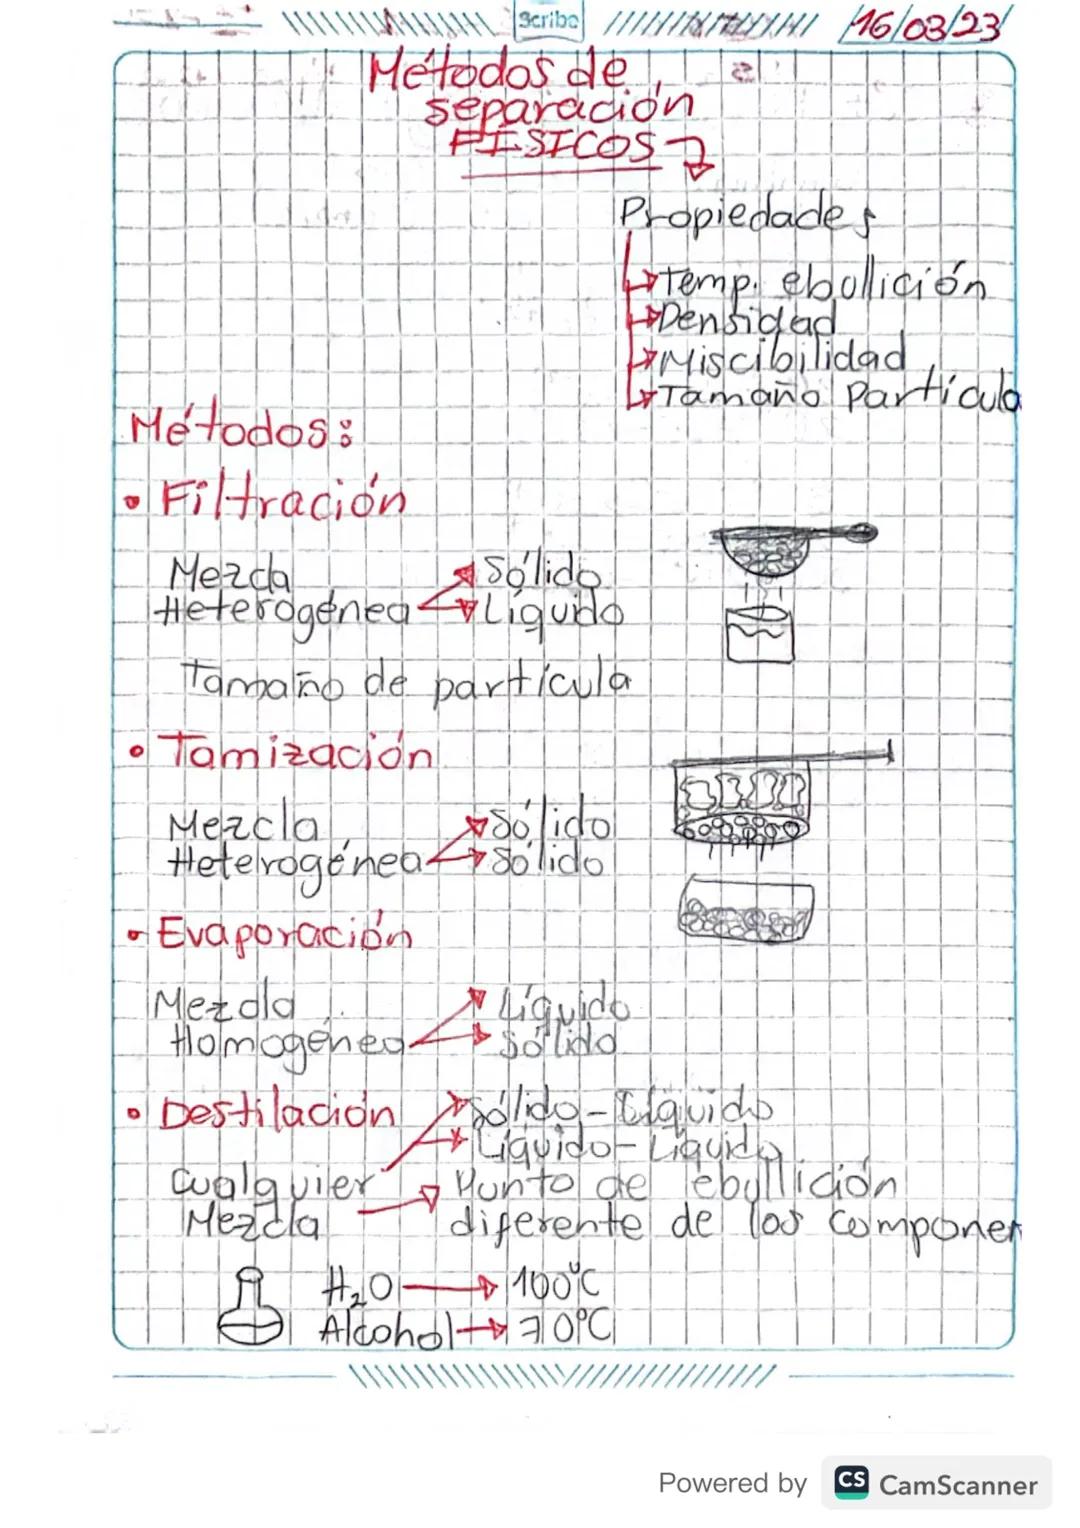 Scribe
16/03/23
Métodos de
separación
FISICOS
Propiedades
Temp. ebullición
Densidad
Miscibilidad
Tamaño Partícula
Métodos:
• Filtración
Mezcla Sólido
Heterogénea Líquido
Tamaño de partícula
• Tamización
Mezcla Sólido
Heterogénea Sólido
• Evaporación
Mezcla Líquido
Homogénea Sólido
• Destilación Sólido - Líquido
Líquido - Líquido
Cualquier Punto de ebullición
Mezcla diferente de los componen
H₂O 100°C
Alcohol 70°C
Powered by CS CamScanner